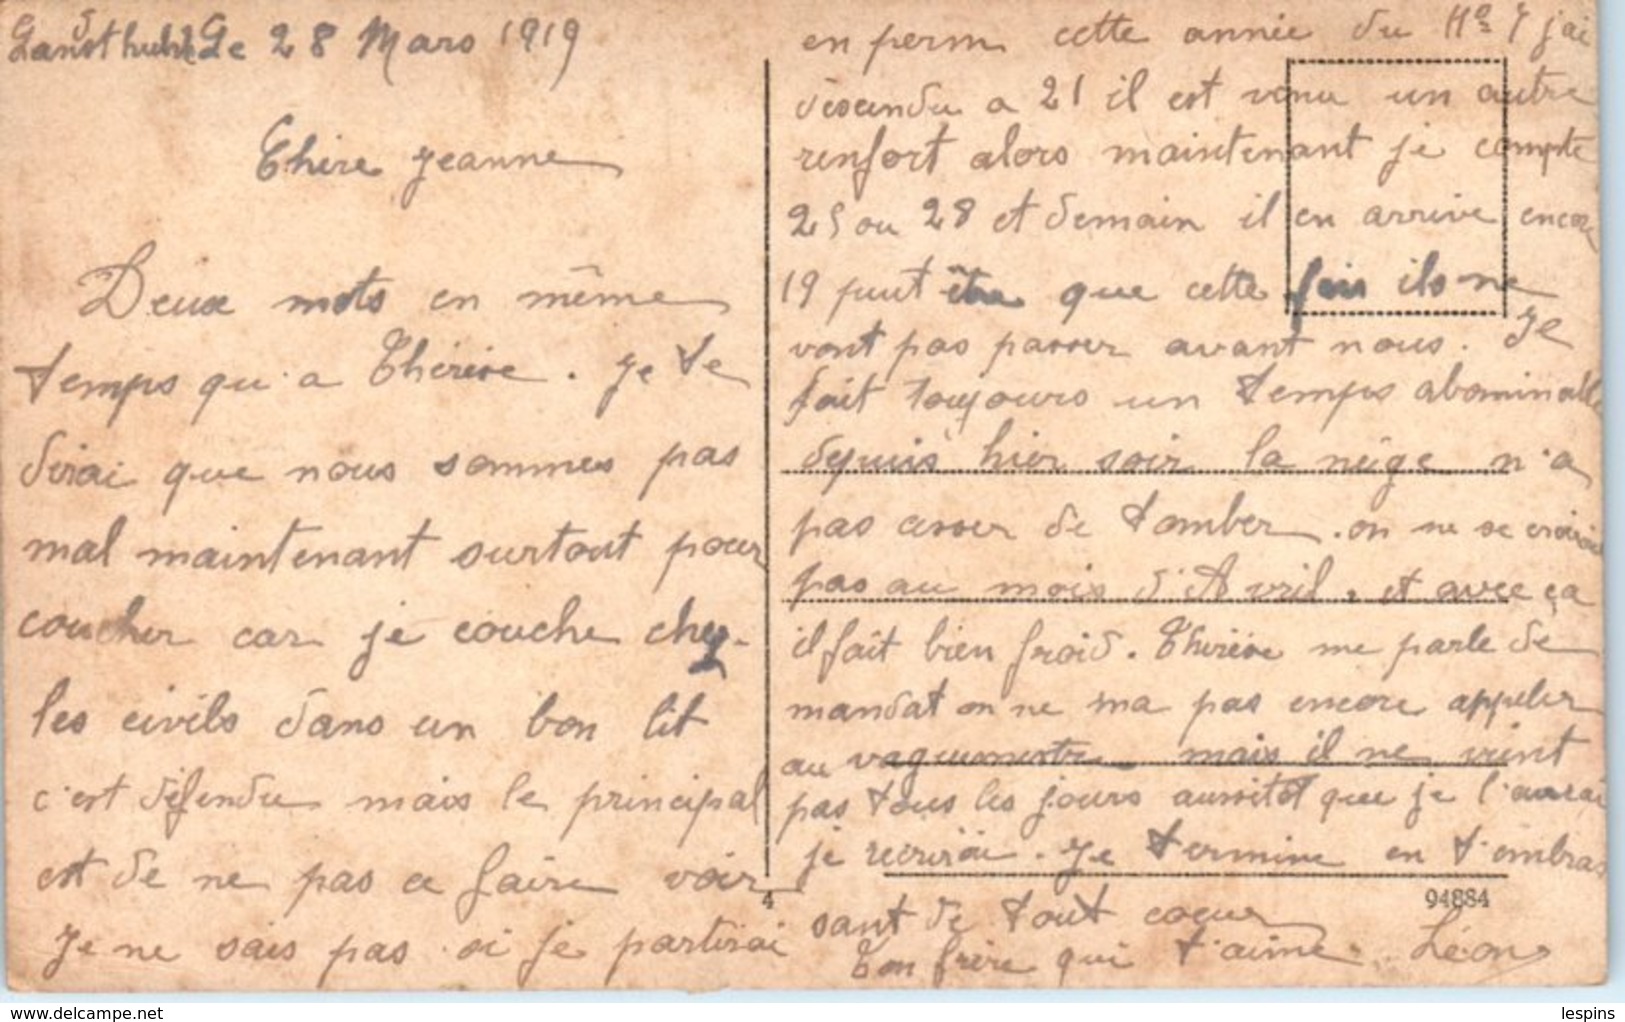 Le 28 Mars 1919
Chère Jeanne
Deux mots en même
temps qu'a Thérèse. Je te
dirai que nous sommes pas
mal maintenant surtout pour
coucher car je couche chez
les civils dans un bon lit
c'est défendu mais le principal
est de ne pas ce faire voir
Je ne sais pas si je partirai
en perm cette année du No 7 j'ai
désendu a 21 il est venu un autre
renfort alors maintenant je compte
25 ou 28 et demain il en arrive encore
19 peut être que cette fois ils ne
vont pas passer avant nous. Je
fait toujours un temps abominable
depuis hier soir la neige n'a
pas cesser de tomber. on ne se croirai
pas au mois d'Avril. et avec ça
il fait bien froid. Thérèse me parle de
mandat on ne ma pas encore appeler
au vaguemestre mais il ne vient
pas tous les jours aussitot que je l'aurai
je récrirai. Je termine en t'embras
sant de tout coeur
Ton frère qui t'aime. Léon
4
94884
lespins